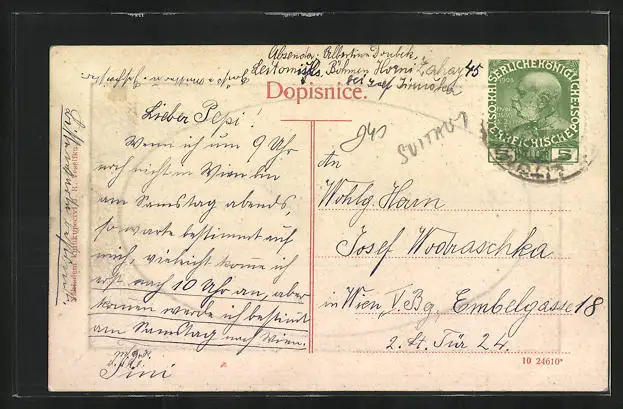 Absender: Albertine Doubek,
Leitomischl, Böhmen Horni Zahay 45
bei Josef
Dopisnice.
KAISERLICHE KÖNIGLICHE ÖSTERREICHISCHE POST
5 5
Lieber Pepi!
Wenn ich um 9 Uhr
noch nicht in Wien bin
am Samstag abends,
so warte bestimmt auf
mich, vieleicht komme ich
erst nach 10 Uhr an, aber
kommen werde ich bestimt
am Samstag nach Wien.
Tini
An
Wohlg. Herrn
Josef Wodraschka
in Wien V. Bg. Embelgasse 18
2. St. Tür 24.
10 24610*